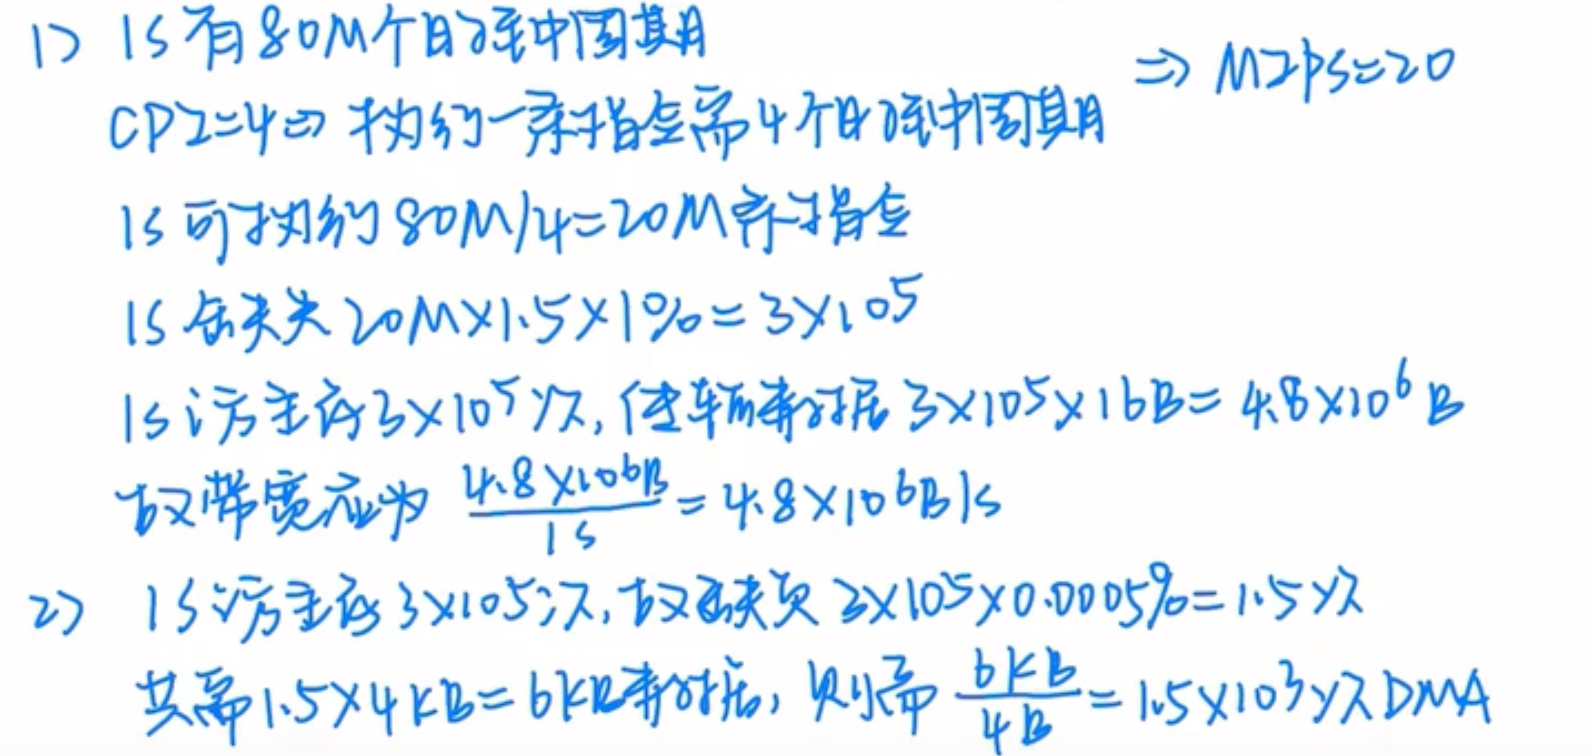 1) 1S有80M个时钟周期
CPI=4⇒执行一条指令需4个时钟周期 ⇒ MIPS=20
1S可执行80M/4=20M条指令
1S缺失 20M×1.5×1%=3×10⁵
1S访主存3×10⁵次,传输数据 3×10⁵×16B=4.8×10⁶B
故带宽应为 4.8×10⁶B/1S = 4.8×10⁶B/s
2) 1S访主存3×10⁵次,故缺页 3×10⁵×0.0005%=1.5次
共需1.5×4KB=6KB数据,则需 6KB/4B = 1.5×10³次DMA